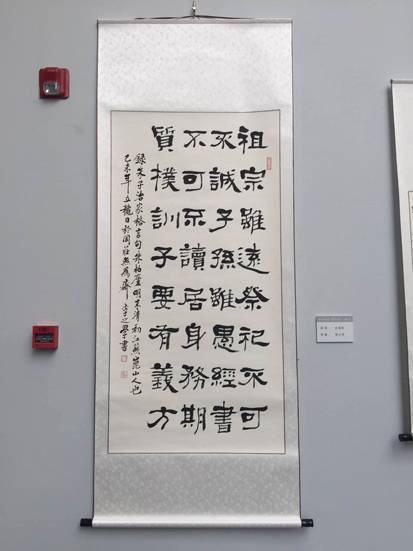 祖宗雖遠祭祀不可
不誠子孫雖愚經書
不可不讀居身務期
質樸訓子要有義方
錄朱子治家格言句朱柏廬明末清初江蘇崑山人也
乙未年